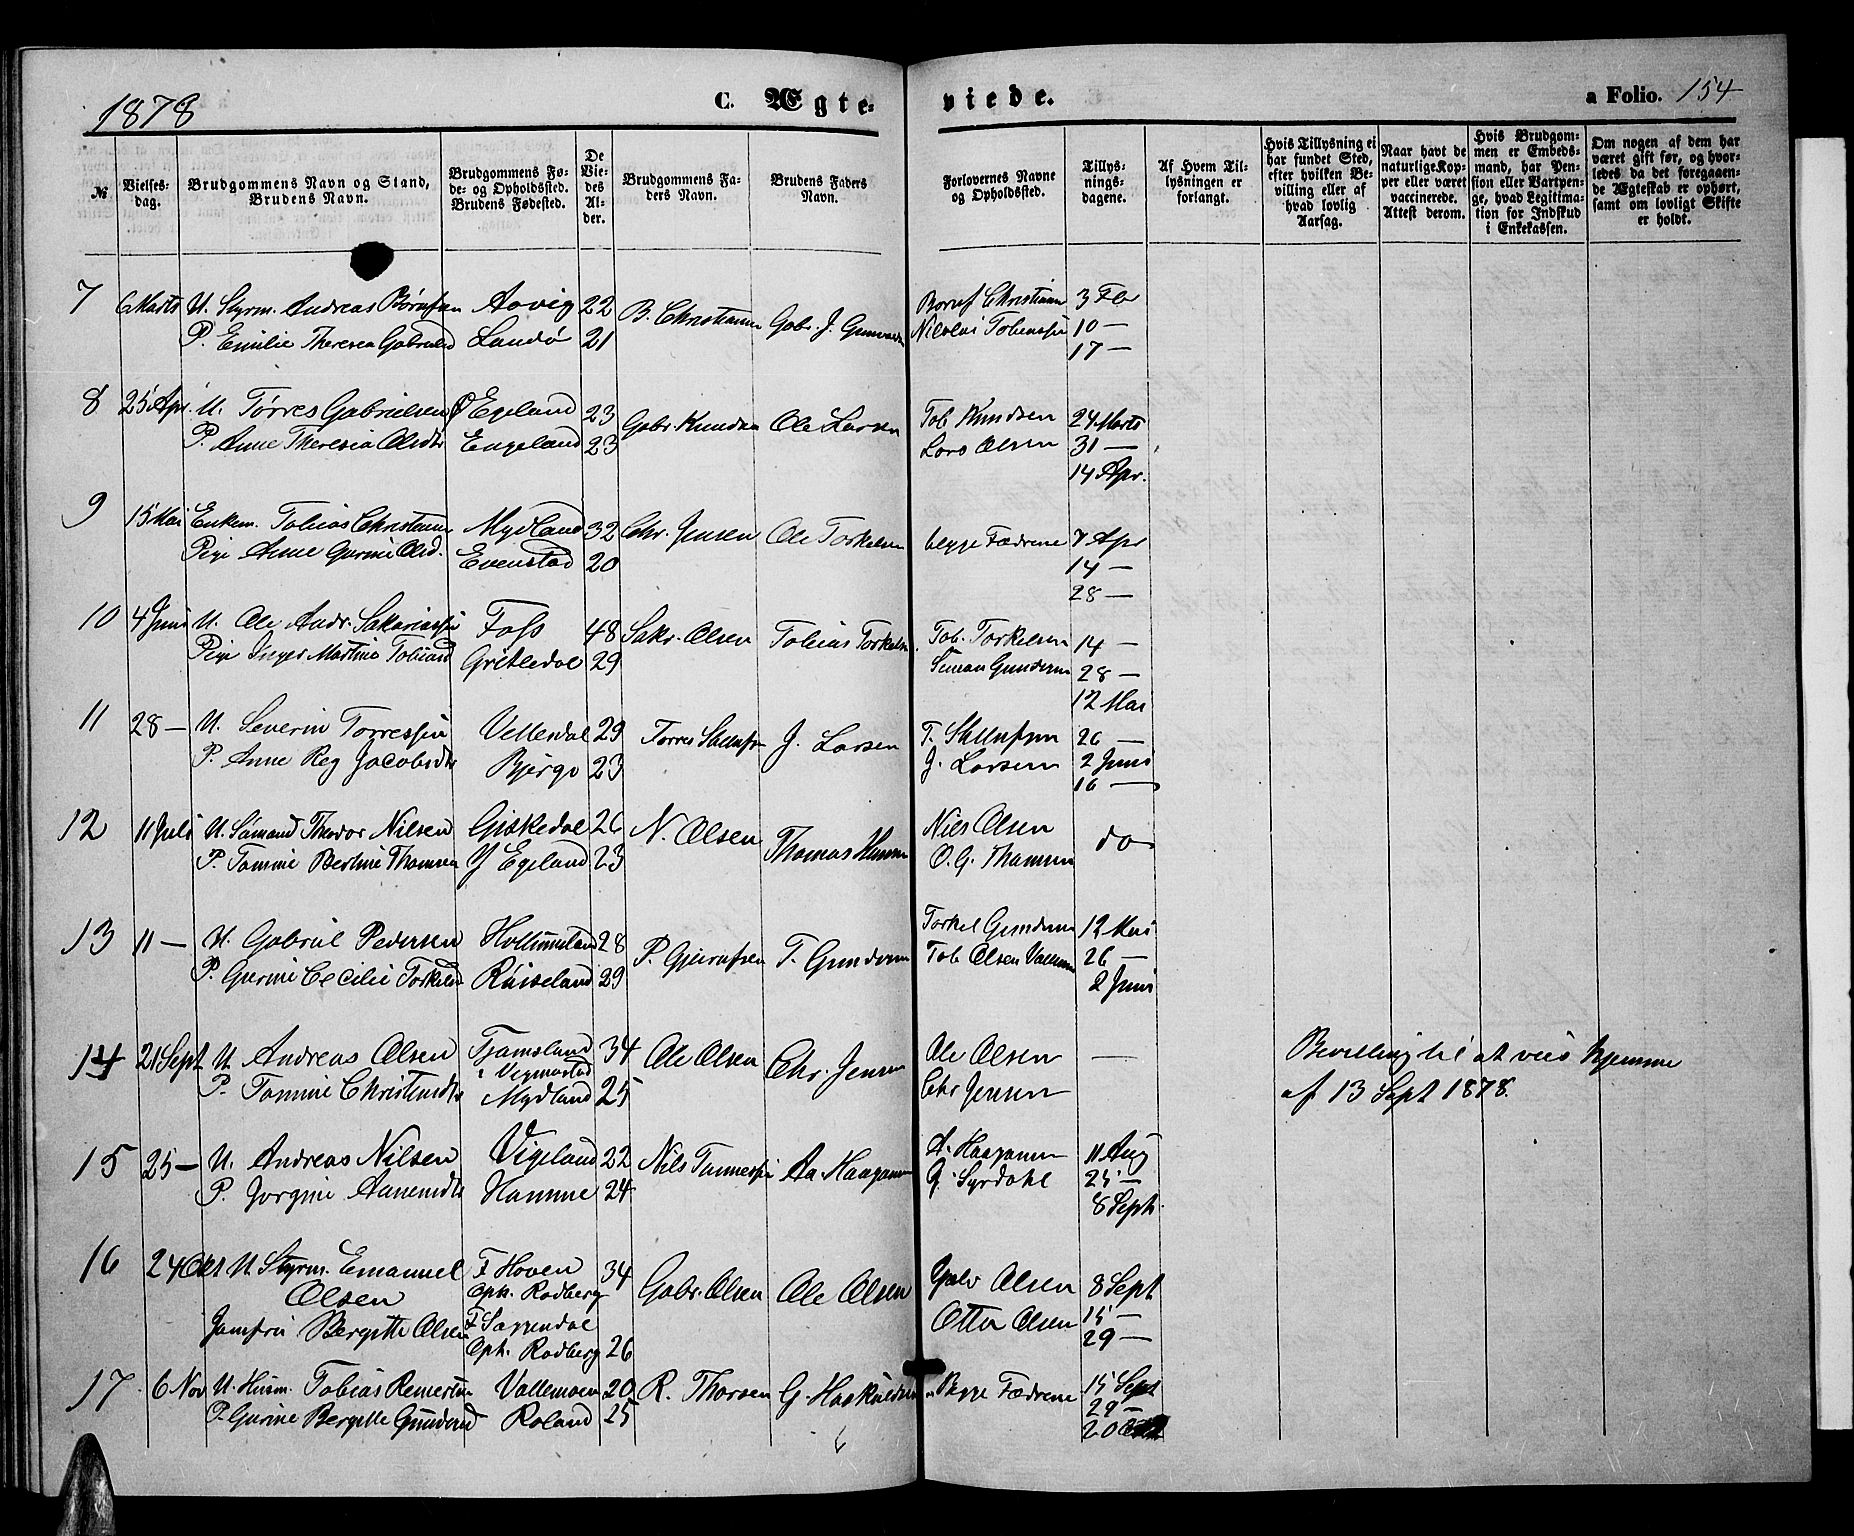 1878
C. Ægteviede.
a Folio. 154
№
Vielses-dag.
Brudgommens Navn og Stand, Brudens Navn.
Brudgommens Føde- og Opholdssted. Brudens Fødested.
De Viedes Alder.
Brudgommens Faders Navn.
Brudens Faders Navn.
Forlovernes Navne og Opholdssted.
Tillysningsdagene.
Af Hvem Tillysningen er forlangt.
Hvis Tillysning ei har fundet Sted, efter hvilken Bevilling eller af hvad lovlig Aarsag.
Naar havt de naturlige Kopper eller været vaccinerede. Attest derom.
Hvis Brudgommen er Embedsmand, har Pension eller Vartpenge, hvad Legitimation for Indskud i Enkekassen.
Om nogen af dem har været gift før, og hvorledes da det foregaaende Ægteskab er ophørt, samt om lovligt Skifte er holdt.
7 6 Marts U. Styrm. Andreas Aavig 22 B. Christiansen Gabr. J. Christiansen 3 Feb
P. Emilie Theresia Gabrielsd Landø 21 Nicolai Tobiassen 10 —
17 —
8 25 Apr. U. Tørres Gabrielsen Egeland 23 Gabr. Knudsen Ole Larsen Tob Knudsen 24 Marts
P. Anne Theresia Olsdtr Engeland 23 Lars Olsen 31 —
14 Apr.
9 15 Mai Enkem. Tobias Christensen Mydland 32 Chr. Jensen Ole Torkelsen begge Fædrene 7 Apr
Pige Anne Gurine Olsd. Evenstad 20 14 —
28 —
10 4 Juni U. Ole Andr. Sakariassen Foss 48 Sakr. Olsen Tobias Torkelsen Tob. Torkelsen 14 —
Pige Inger Martine Tobiasd 29 Simon Gundersen 28 —
12 Mai
11 28 — U. Severin Torressen Vellesdal 29 J. Larsen 26 —
P. Anne Reg Jacobsdtr Bjerge 23 J. Larsen 2 Juni
16 —
12 11 Juli U. Sømand Theodor Nilsen Giskedal 26 N. Olsen Thomas Hansen Nils Olsen do
P. Tomine Bertine Thomsen Y Egeland 23 O. G. Thomsen
13 11 — U. Gabriel Pedersen 28 T. Gundersen Torkel Gundersen 12 Mai
P. Gurine Cecilie Torkelsd Røiseland 29 Tob Olsen 26 —
2 Juni
14 21 Sept U. Andreas Olsen Tjomsland 34 Ole Olsen Chr. Jensen Ole Olsen — Bevilling til at vies hjemme
i Vegmostad
P. Tomine Christensdtr Mydland 25 Chr Jensen af 13 Sept 1878.
15 25 — U. Andreas Nilsen Vigeland 22 Nils Tønnessen Aa Haagensen A. Haagensen 11 Aug
P. Jorgine Aanensdtr Homme 24 G. Syrdahl 25 —
8 Sept.
16 24 Okt U. Styrm. Emanuel F Hoven 34 Gabr. Olsen Ole Olsen Gabr Olsen 8 Sept
Olsen Oph. Rodberg
Jomfru Bergitte Olsen F Sággendal Otto Olsen 15 —
Oph. Rodberg 26 29 —
17 6 Nov U. Husm. Tobias Reinertsen Vallemoen 20 R. Thorsen G. Haskuldsen Begge Fædrene 15 Sept
P. Gurine Bergitte Gundersd Roland 25 29 —
20